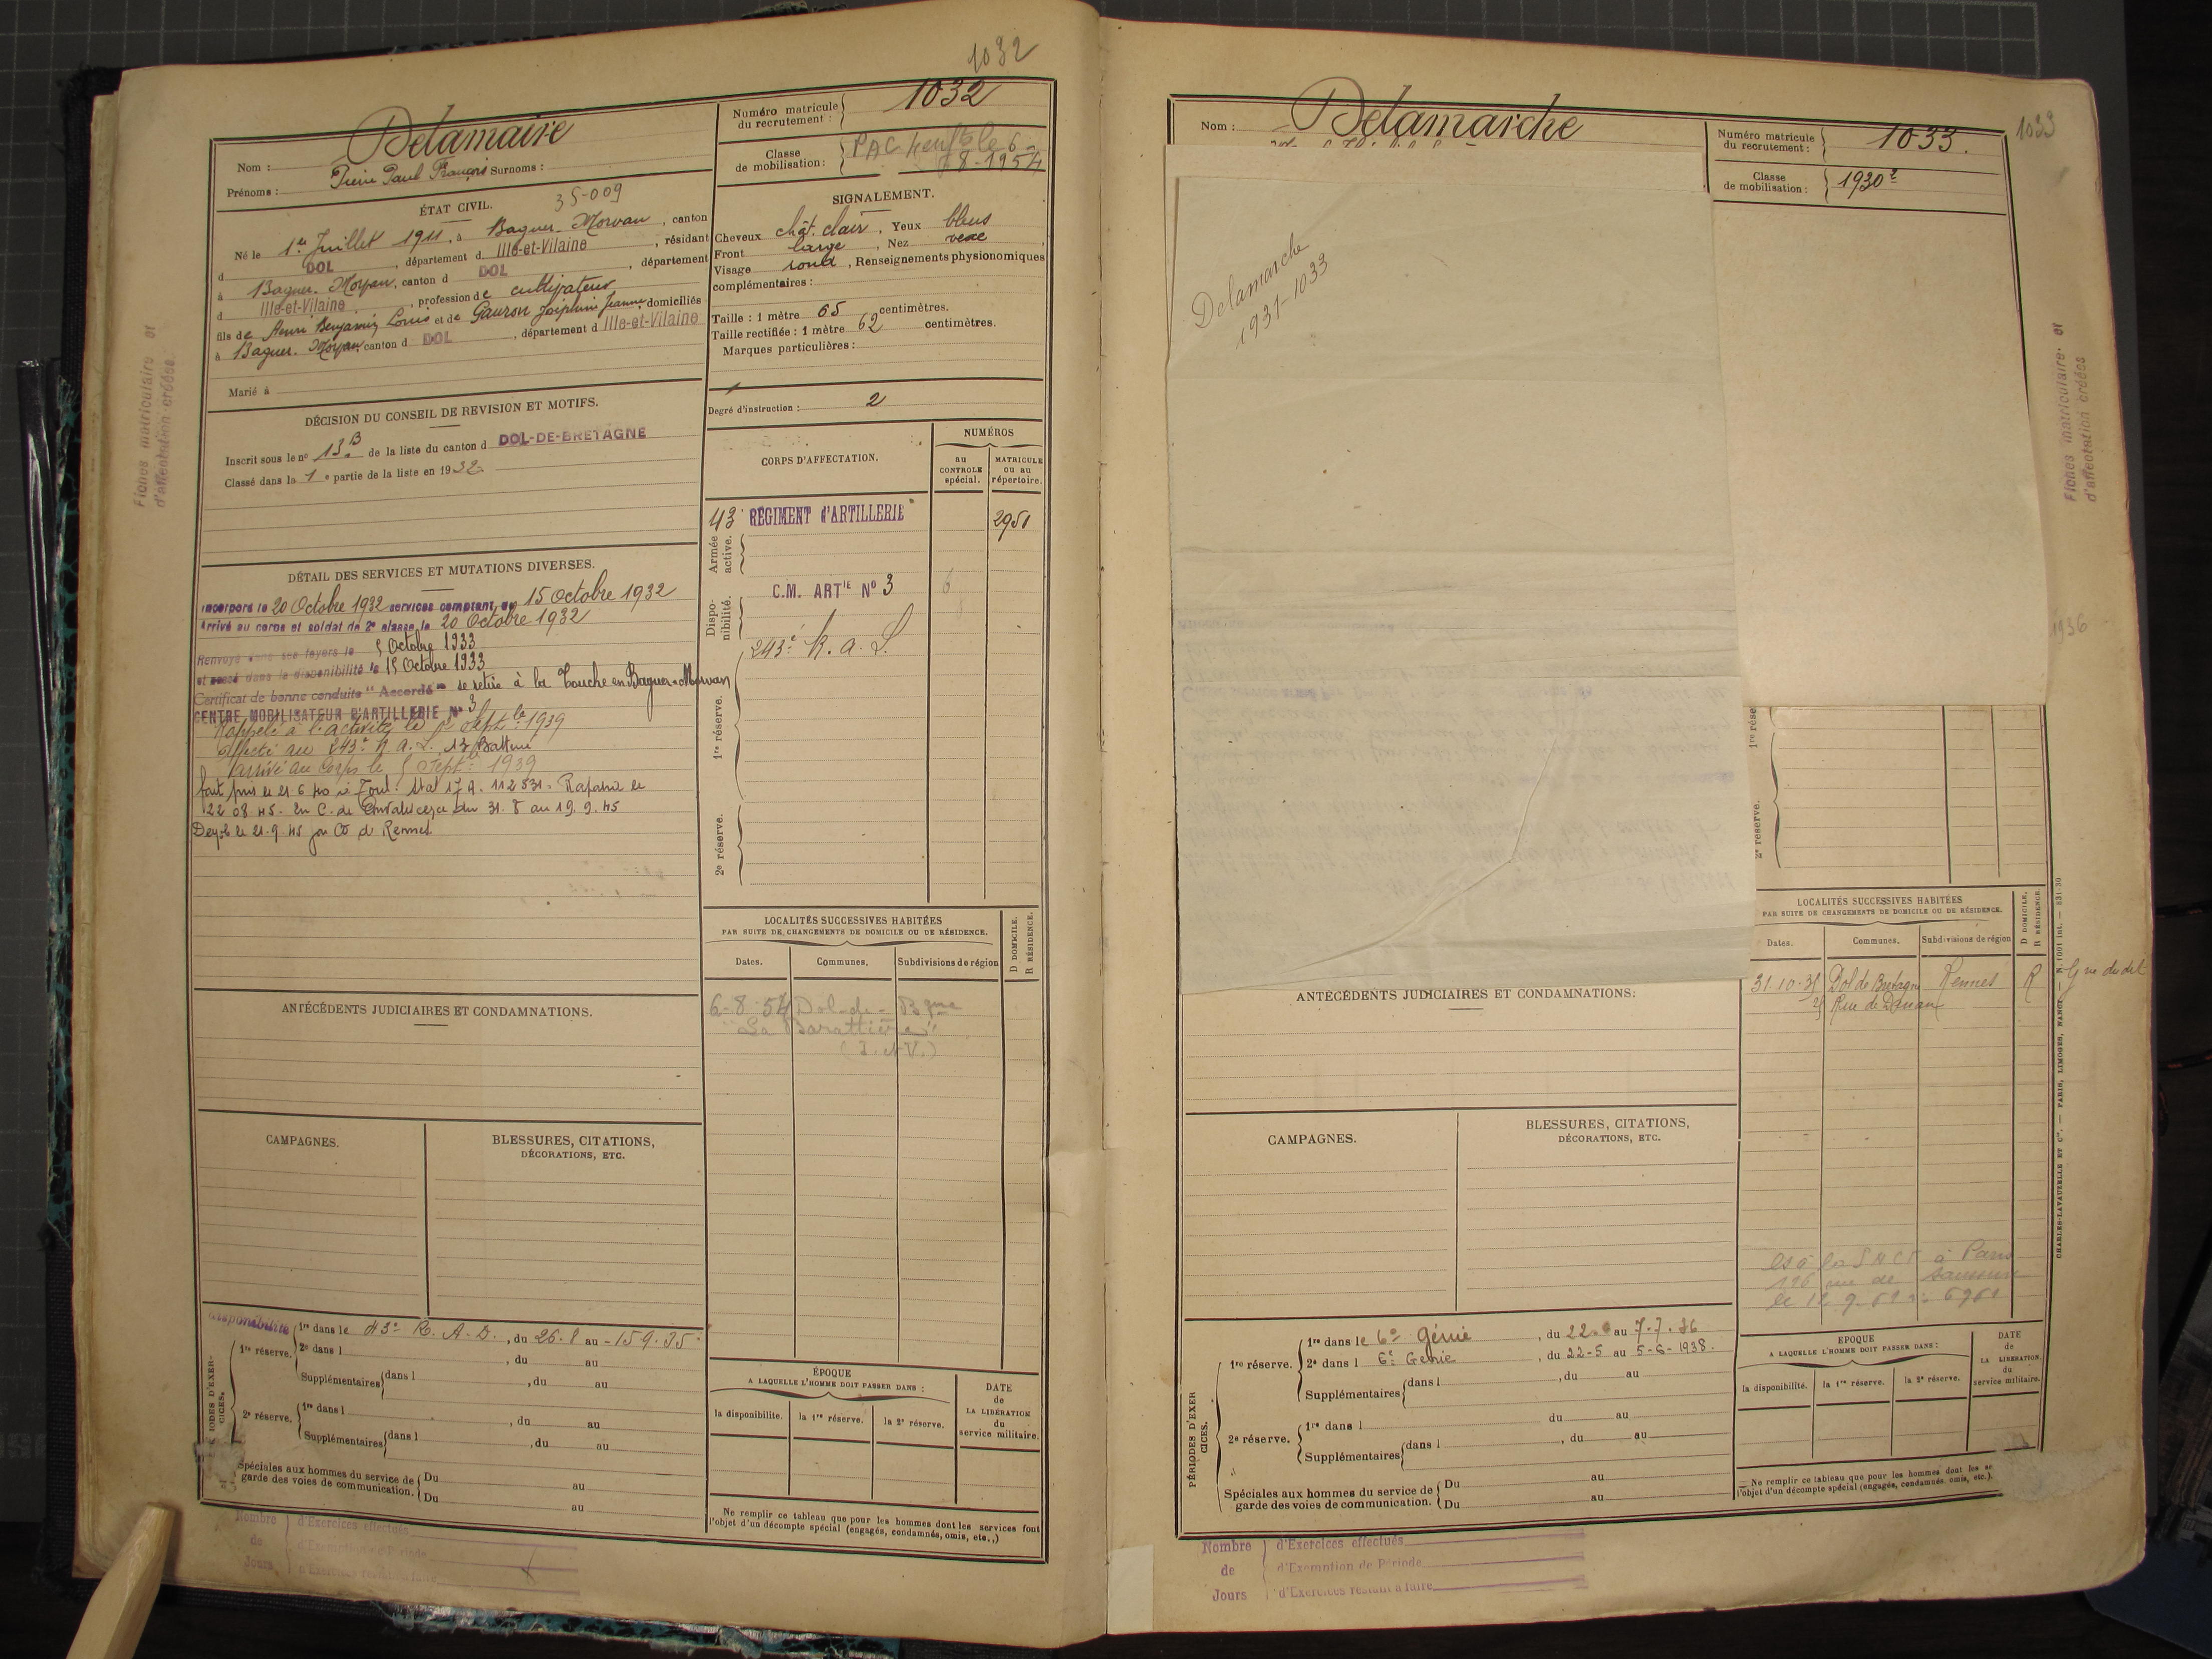 1032
Nom : Delamaire
Prénoms : Pierre Paul François Surnoms :
Numéro matricule du recrutement : 1032
Classe de mobilisation : PAC le 6-8-1954
ÉTAT CIVIL.
35-009
Né le 1er Juillet 1911, à Baguer-Morvan, canton
d DOL, département d Ille-et-Vilaine, résidant
à Baguer-Morvan, canton d DOL, département
d Ille-et-Vilaine, profession de cultivateur
fils de Henri Benjamin Louis et de Gauron Joséphine Jeanne domiciliés
à Baguer-Morvan, canton d DOL, département d Ille-et-Vilaine
Marié à
SIGNALEMENT.
Cheveux chât. clair, Yeux bleus
Front large, Nez
Visage rond, Renseignements physionomiques
complémentaires :
Taille : 1 mètre 65 centimètres.
Taille rectifiée : 1 mètre 62 centimètres.
Marques particulières :
Degré d'instruction : 2
DÉCISION DU CONSEIL DE REVISION ET MOTIFS.
Inscrit sous le n° 13 B de la liste du canton d DOL-DE-BRETAGNE
Classé dans la 1e partie de la liste en 1932
CORPS D'AFFECTATION.
NUMÉROS
au CONTROLE spécial.
MATRICULE ou au répertoire.
Armée active.
43e RÉGIMENT d'ARTILLERIE 2951
Disponibilité.
C.M. ARTIE N° 3 6
1re réserve.
243e R.A.L.
2e réserve.
DÉTAIL DES SERVICES ET MUTATIONS DIVERSES.
Incorporé le 20 Octobre 1932 services comptant du 15 Octobre 1932
Arrivé au corps et soldat de 2e classe le 20 Octobre 1932
Renvoyé dans ses foyers le 5 Octobre 1933
et passé dans la disponibilité le 15 Octobre 1933
Certificat de bonne conduite "Accordé" se retire à la Touche en Baguer-Morvan
CENTRE MOBILISATEUR D'ARTILLERIE N° 3
Rappelé à l'activité le Septbre 1939
affecté au 243e R.A.L. 13e Batterie
arrivé au Corps le 5 Septbre 1939
fait pris le 21 6 40 à Toul. Stal 17 A. 112531. Rapatrié le
22 08 45. En C. de Convalescence du 31.8 au 19.9.45
Démob le 21-9 45 par CD de Rennes.
LOCALITÉS SUCCESSIVES HABITÉES
PAR SUITE DE CHANGEMENTS DE DOMICILE OU DE RÉSIDENCE.
Dates. Communes. Subdivisions de région
D DOMICILE. R RÉSIDENCE.
6-8-54 Dol-de-Bgne
"La Barattière"
(I. et V.)
ANTÉCÉDENTS JUDICIAIRES ET CONDAMNATIONS.
CAMPAGNES.
BLESSURES, CITATIONS,
DÉCORATIONS, ETC.
Disponibilité
PÉRIODES D'EXERCICES.
1re réserve. 1re dans le 43e R.A.D., du 26.8 au 15-9-35
2e dans l , du au
Supplémentaires dans l , du au
2e réserve. 1re dans l , du au
Supplémentaires dans l , du au
Spéciales aux hommes du service de garde des voies de communication. Du au
Du au
ÉPOQUE
A LAQUELLE L'HOMME DOIT PASSER DANS :
la disponibilité. la 1re réserve. la 2e réserve.
DATE de LA LIBÉRATION du service militaire.
Ne remplir ce tableau que pour les hommes dont les services font
l'objet d'un décompte spécial (engagés, condamnés, omis, etc.,)
Nombre de Jours
d'Exercices effectués
d'Exemption de Période
d'Exercices restant à faire
Fiches matriculaire et
d'affectation créées
Nom : Delamarche
Numéro matricule du recrutement : 1033.
1033
Classe de mobilisation : 1930
Delamarche
1931-1033
Fiches matriculaire et
d'affectation créées
1936
1re réserve.
2e réserve.
LOCALITÉS SUCCESSIVES HABITÉES
PAR SUITE DE CHANGEMENTS DE DOMICILE OU DE RÉSIDENCE.
Dates. Communes. Subdivisions de région
D DOMICILE. R RÉSIDENCE.
31.10.35 Dol de Bretagne Rennes R
Rue de Dinan
ANTÉCÉDENTS JUDICIAIRES ET CONDAMNATIONS:
CAMPAGNES.
BLESSURES, CITATIONS,
DÉCORATIONS, ETC.
à Paris
rue de
PÉRIODES D'EXERCICES.
1re réserve. 1re dans le 6e Génie, du 22-6 au 7.7.36
2e dans l 6e Génie, du 22-5 au 5-6-1938.
Supplémentaires dans l , du au
2e réserve. 1re dans l du au
Supplémentaires dans l , du au
Spéciales aux hommes du service de garde des voies de communication. Du au
Du au
EPOQUE
A LAQUELLE L'HOMME DOIT PASSER DANS :
la disponibilité. la 1re réserve. la 2e réserve.
DATE de LA LIBÉRATION du service militaire.
Ne remplir ce tableau que pour les hommes dont les se
l'objet d'un décompte spécial (engagés, condamnés, omis, etc.).
CHARLES-LAVAUZELLE ET Cie. — PARIS, LIMOGES, NANCY — N. 1001 int. — 831-30
Nombre de Jours
d'Exercices effectués
d'Exemption de Période
d'Exercices restant à faire